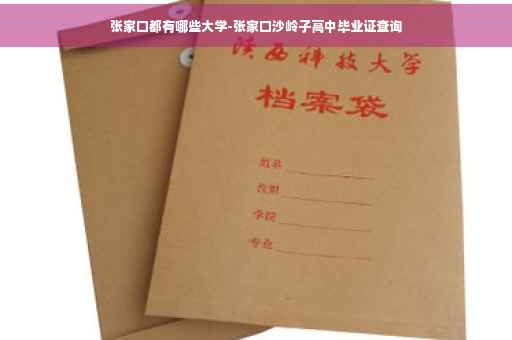 张家口都有哪些大学-张家口沙岭子高中毕业证查询
陕西科技大学
档案袋
姓名
学院
专业